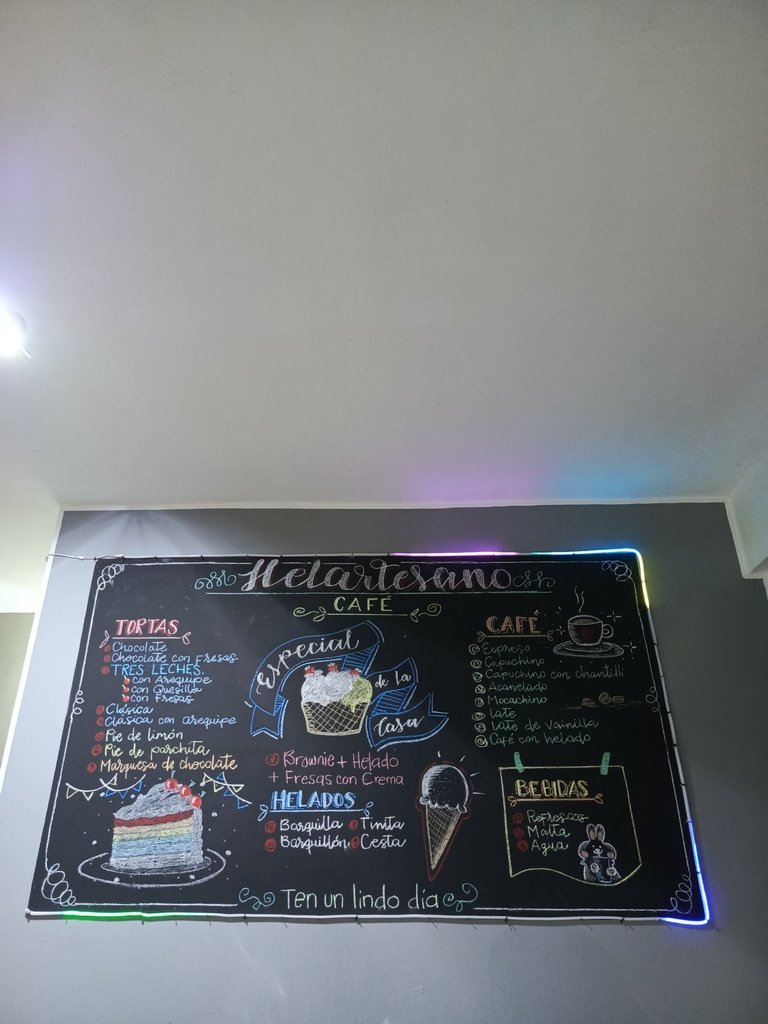 Helartesano
CAFÉ
TORTAS
Chocolate
Chocolate con Fresas
TRES LECHES.
con Arequipe
con Quesilla
con Fresas
Clásica
Clásica con arequipe
Pie de limón
Pie de parchita
Marquesa de chocolate
Especial
de la
Casa
Brownie + Helado
+ Fresas con Crema
HELADOS
Barquilla Tinita
Barquillón Cesta
CAFÉ
Expreso
Capuchino
Capuchino con chantilli
Acanelado
Mocachino
late
late de vainilla
Café con helado
BEBIDAS
Refrescos
Malta
Agua
Ten un lindo día